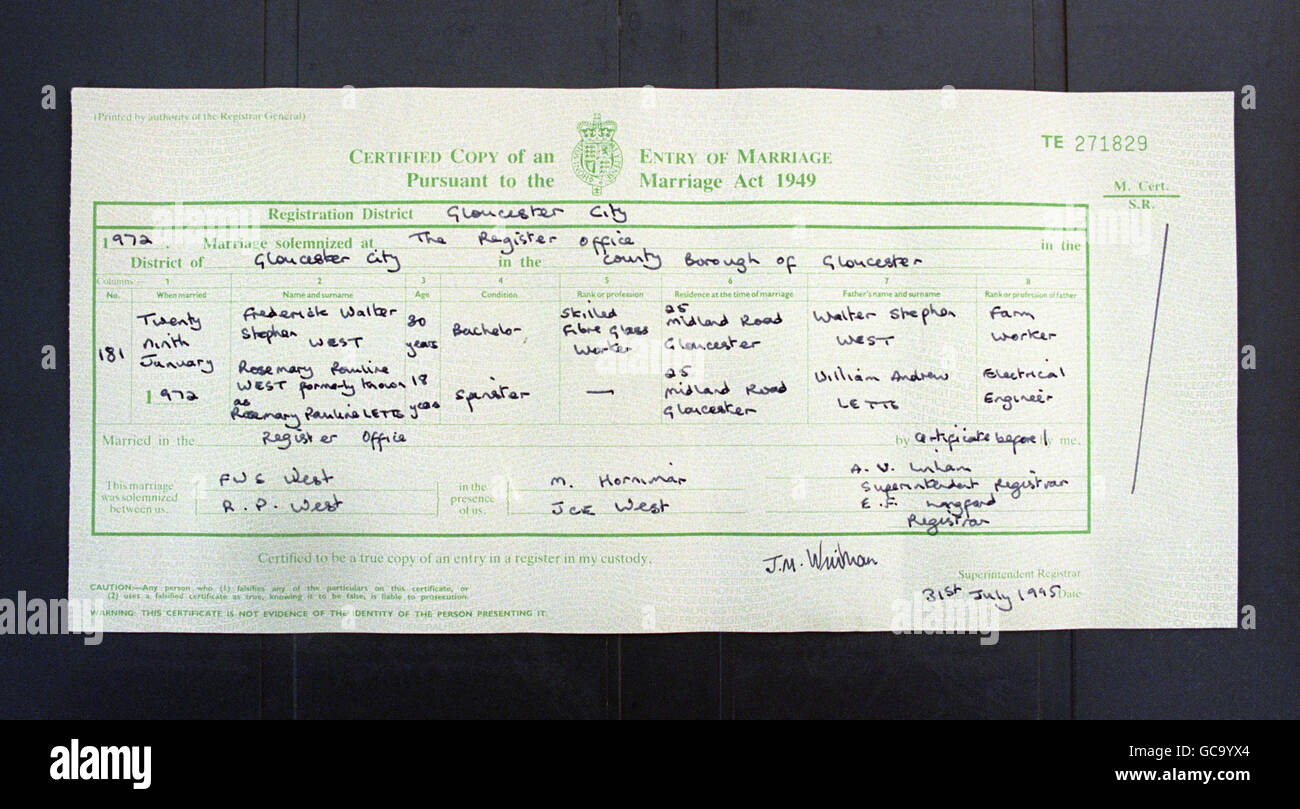 (Printed by authority of the Registrar General)
CERTIFIED COPY of an ENTRY OF MARRIAGE
Pursuant to the Marriage Act 1949
TE 271829
M. Cert.
S.R.
Registration District Gloucester City
1972. Marriage solemnized at The Register Office in the
District of Gloucester City in the County Borough of Gloucester
Columns:— 1 2 3 4 5 6 7 8
No. When married Name and surname Age Condition Rank or profession Residence at the time of marriage Father's name and surname Rank or profession of father
181
Twenty
ninth
January
1972
Frederick Walter
Stephen WEST
30
years
Bachelor
Skilled
Fibre Glass
Worker
25
Midland Road
Gloucester
Walter Stephen
WEST
Farm
Worker
Rosemary Pauline
WEST formerly known
as
Rosemary Pauline LETTS
18
years
Spinster
—
25
Midland Road
Gloucester
William Andrew
LETTS
Electrical
Engineer
Married in the Register Office by certificate before by me.
This marriage
was solemnized
between us,
FWS West
R. P. West
in the
presence
of us,
M. Hornimar
JCE West
A. V.
Superintendent Registrar
E. F. Langford
Registrar
Certified to be a true copy of an entry in a register in my custody.
J.M. Whitman
Superintendent Registrar
31st July 1995 Date
CAUTION:—Any person who (1) falsifies any of the particulars on this certificate, or
(2) uses a falsified certificate as true, knowing it to be false, is liable to prosecution.
WARNING: THIS CERTIFICATE IS NOT EVIDENCE OF THE IDENTITY OF THE PERSON PRESENTING IT.
alamy
Image ID: GC9YX4
www.alamy.com